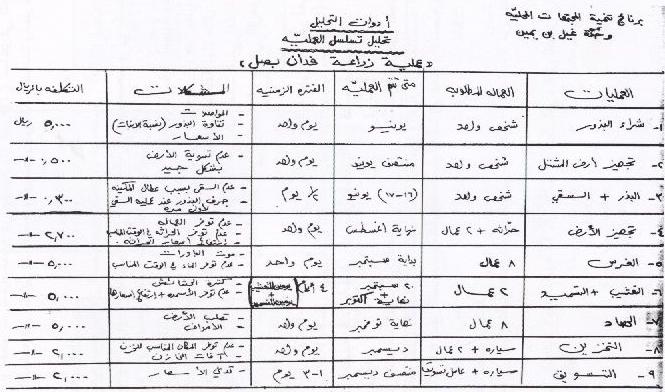 برنامج تنمية المجتمعات المحلية
وحدة غيل بن يمين
أدوات التحليل
تحليل تسلسل العملية
«عملية زراعة فدان بصل»
العمليات | العماله المطلوبه | متى تتم العمليه | الفتره الزمنيه | المشكلات | التكلفه بالريال
١- شراء البذور | شخص واحد | يونيو | يوم واحد | - المواصلات
- نقاوة البذور (نسبة الانبات)
- الأسعار | ٥,٠٠٠ ريال
٢- تجهيز أرض المشتل | شخص واحد | منتصف يونيو | يوم واحد | - عدم تسوية الأرض
بشكل جيد | ٠,٥٠٠ -"-
٣- البذر + السقي | شخص واحد | (١٦-١٧) يونيو | ١/٢ يوم | - عدم السقي بسبب عطال المكينه
- جرف البذور عند عملية السقي
لأول مره | ٠,٣٠٠ -"-
٤- تجهيز الأرض | حراثه + ٢ عمال | نهاية اغسطس | يوم واحد | - عدم توفر العماله
- عدم توفر الحراثه في الوقت المناسب
- ارتفاع أسعار الحراثه | ٢,٧٠٠ -"-
٥- الغرس | ٨ عمال | بداية سبتمبر | يوم واحد | - موت البادرات
- عدم توفر الماء في الوقت المناسب | ٥,٠٠٠ -"-
٦- التعشيب + التسميد | ٢ عمال | ٢٠ سبتمبر
+
نهاية اكتوبر | ٤ أيام
+ | - كثرة الحشائش
- عدم توفر الأسمده + ارتفاع أسعارها | ٥,٠٠٠ -"-
٧- الحصاد | ٨ عمال | نهاية نوفمبر | يوم واحد | - تصلب الأرض
- | ٥,٠٠٠ -"-
٨- التخزين | سياره + ٢ عمال | ديسمبر | يوم واحد | - عدم توفر المكان المناسب للخزن
- آفات المخازن | ٢,٠٠٠ -"-
٩- التسويق | سياره + عامل | منتصف ديسمبر | ١-٣ يوم | - تدني الأسعار | ٢,٠٠٠ -"-